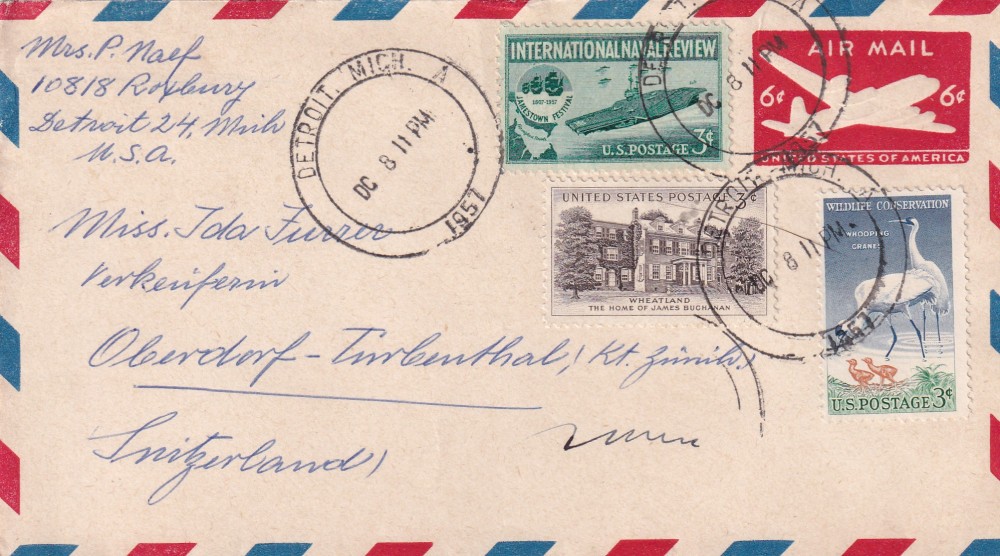 Mrs. P. Naef
10818 Roxbury
Detroit 24, Mich
U.S.A.
DETROIT, MICH. A
DC 8 11 PM
1957
INTERNATIONAL NAVAL REVIEW
1607-1957
JAMESTOWN FESTIVAL
U.S. POSTAGE 3¢
DETROIT, A
DC 8 11 PM
1957
AIR MAIL
6¢ 6¢
UNITED STATES OF AMERICA
Miss. Ida Furrer
Verkeuferin
Oberdorf - Turbenthal, (Kt. Zürich)
Switzerland)
UNITED STATES POSTAGE 3¢
WHEATLAND
THE HOME OF JAMES BUCHANAN
DETROIT, MICH.
DC 8 11 PM
1957
WILDLIFE CONSERVATION
WHOOPING
CRANES
U.S. POSTAGE 3¢